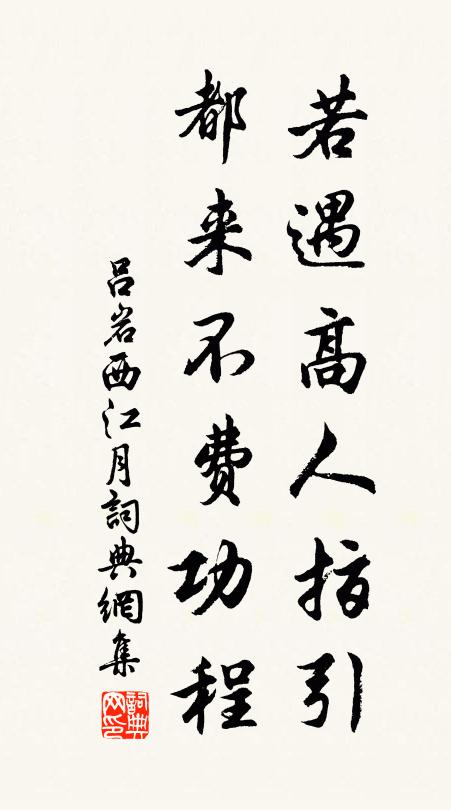 若遇高人指引
都来不费功程
吕岩西江月詞典網集
詞典网印